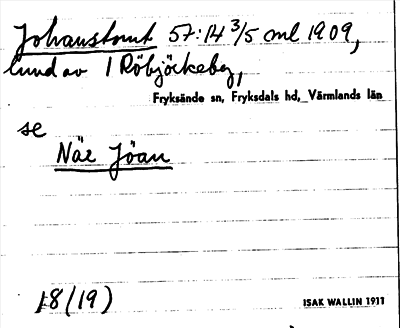 Johanstomt 57:14 3/5 enl 1909,
lund av 1 Röbjöckeby,
Fryksände sn, Fryksdals hd, Värmlands län
se
När Jöan
18(19)
ISAK WALLIN 1911